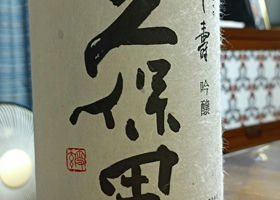 千壽 吟醸
久保田